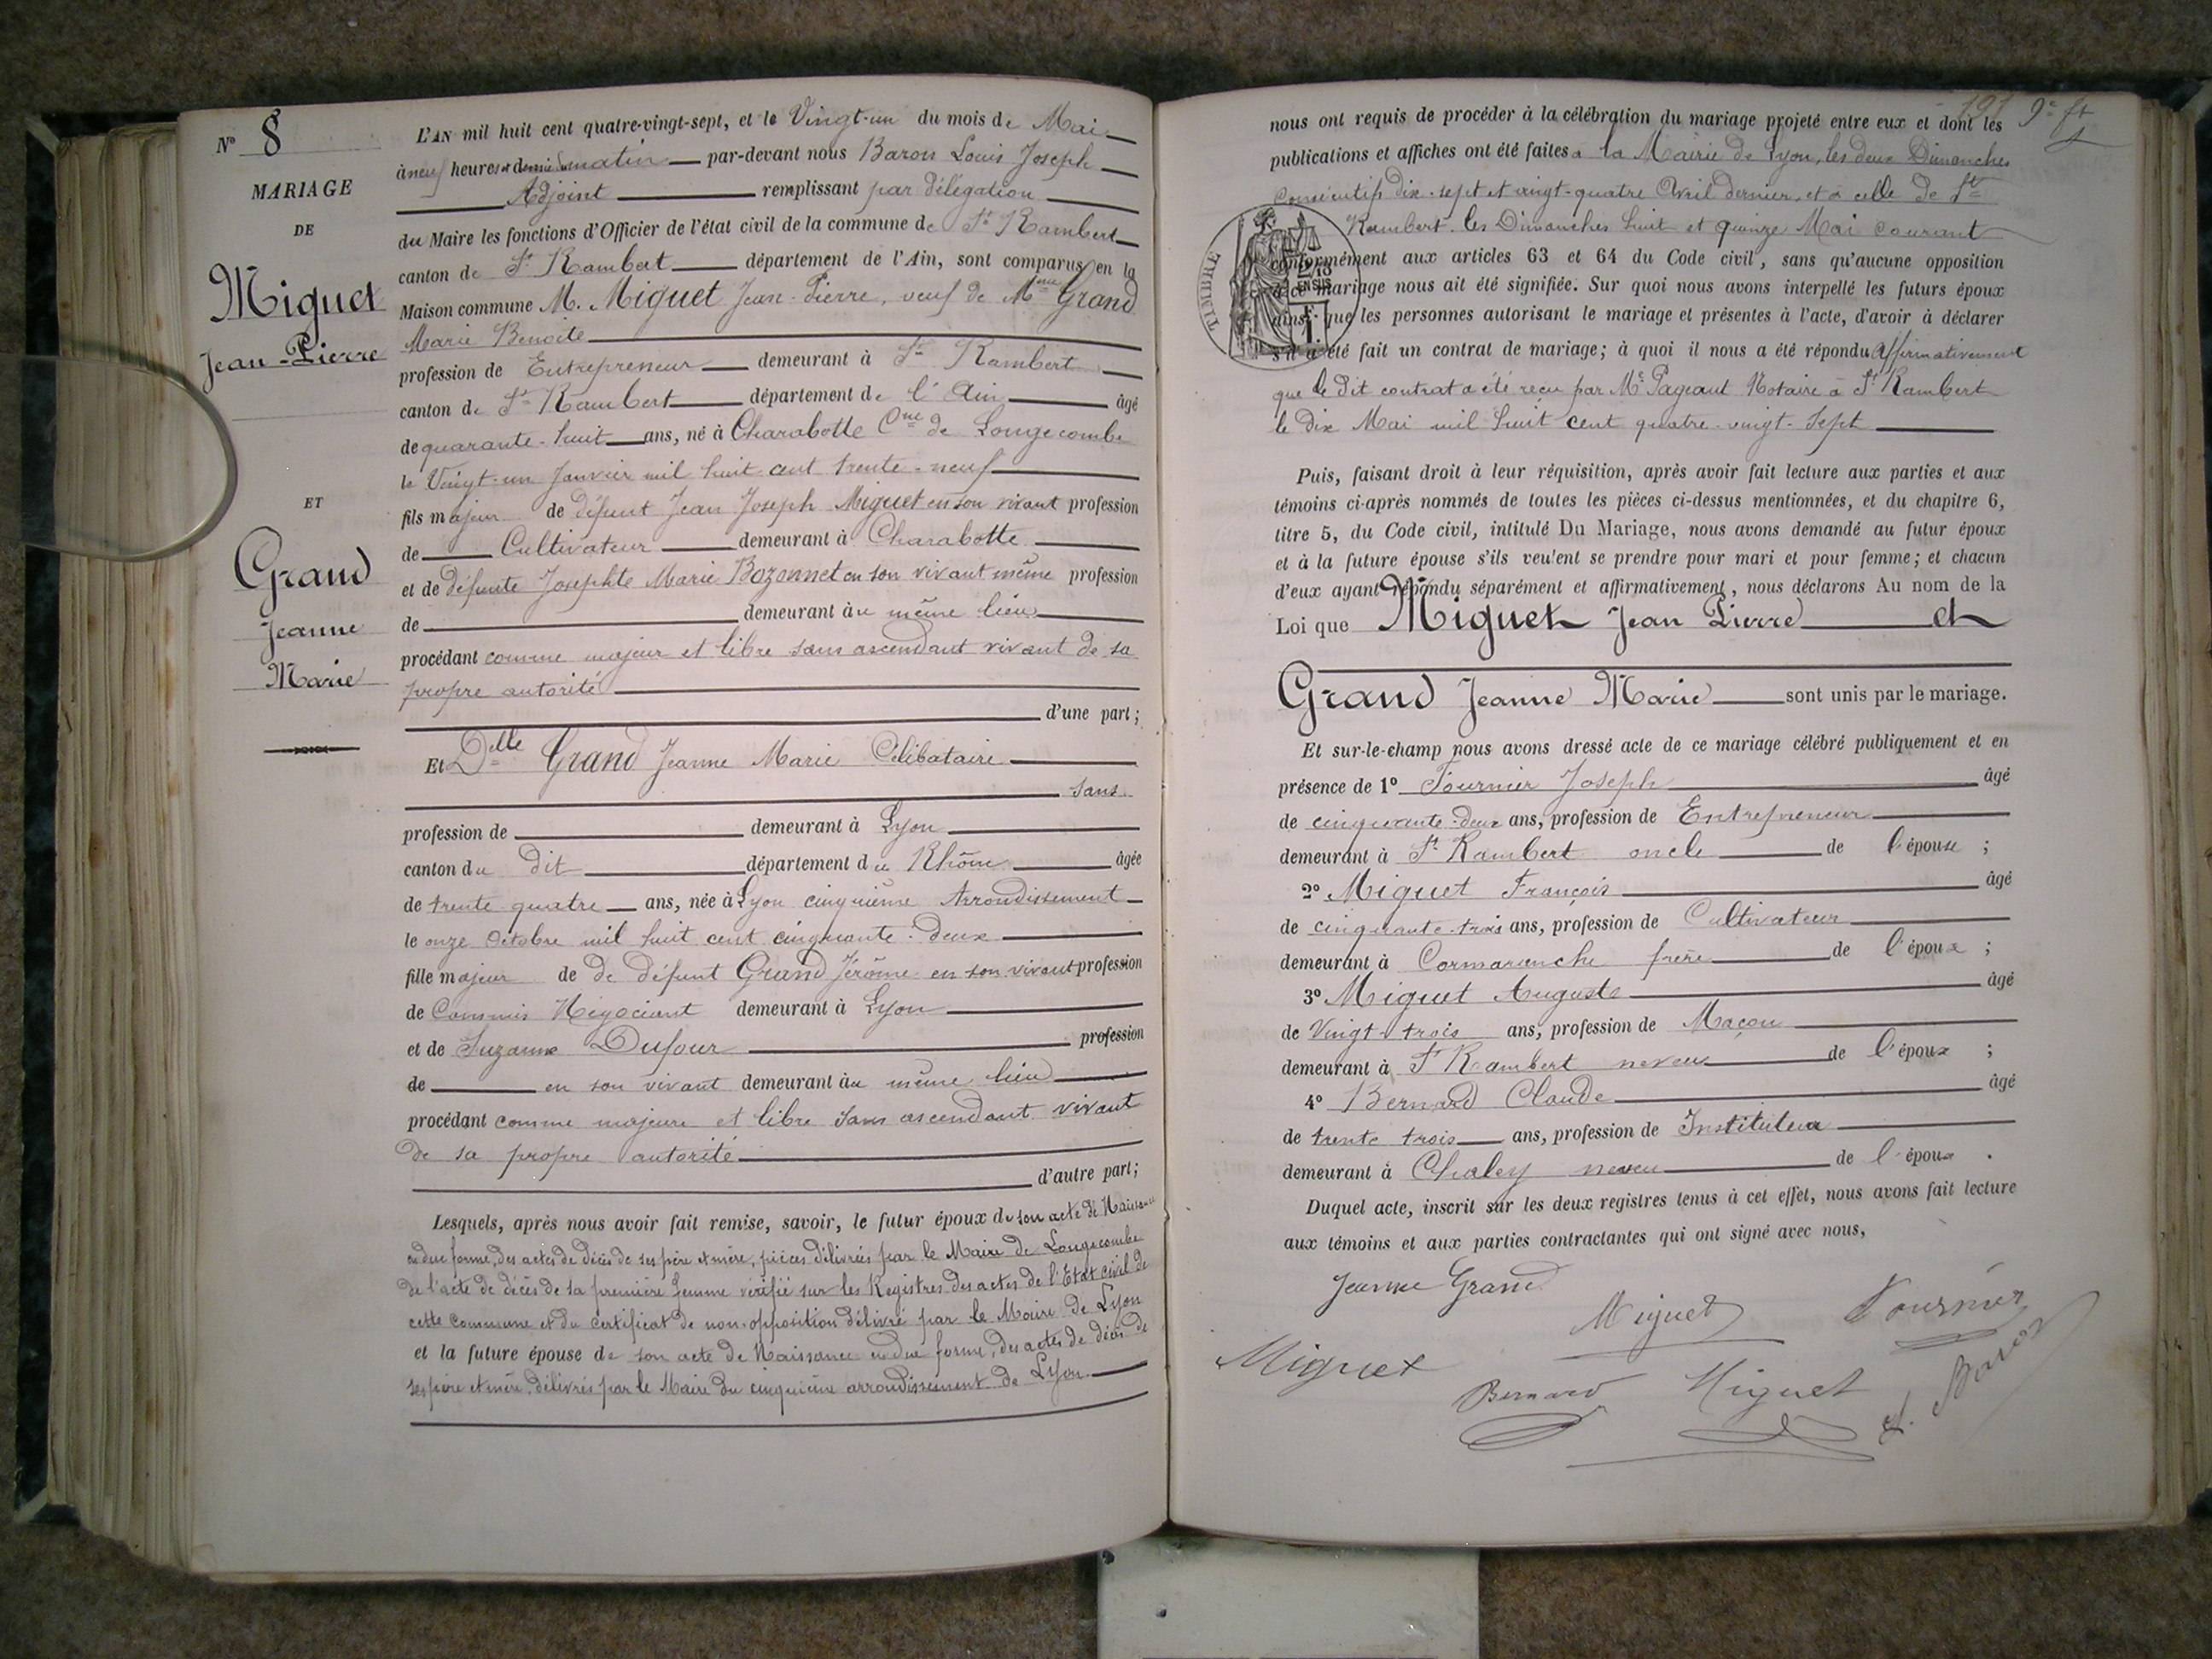 N° 8
MARIAGE
DE
Miguet
Jean-Pierre
ET
Grand
Jeanne
Marie
L'AN mil huit cent quatre-vingt-sept, et le Vingt-un du mois de Mai
à neuf heures et demie du matin par-devant nous Baron Louis Joseph
Adjoint remplissant par délégation
du Maire les fonctions d'Officier de l'état civil de la commune de St Rambert
canton de St Rambert département de l'Ain, sont comparus en la
Maison commune M. Miguet Jean-Pierre, veuf de Mme Grand
Marie Benoite
profession de Entrepreneur demeurant à St Rambert
canton de St Rambert département de l'Ain âgé
de quarante-huit ans, né à Charabotte Cne de Longecombe
le Vingt-un Janvier mil huit cent trente-neuf
fils majeur de défunt Jean Joseph Miguet en son vivant profession
de Cultivateur demeurant à Charabotte
et de défunte Josephte Marie Bozonnet en son vivant même profession
de demeurant au même lieu
procédant comme majeur et libre sans ascendant vivant de sa
propre autorité
d'une part;
Et Delle Grand Jeanne Marie Célibataire
sans
profession de demeurant à Lyon
canton du dit département du Rhône âgée
de trente quatre ans, née à Lyon cinquième Arrondissement
le onze Octobre mil huit cent cinquante-deux
fille majeur de de défunt Grand Jérôme en son vivant profession
de Commis Négociant demeurant à Lyon
et de Suzanne Dufour profession
de en son vivant demeurant au même lieu
procédant comme majeure et libre sans ascendant vivant
de sa propre autorité
d'autre part;
Lesquels, après nous avoir fait remise, savoir, le futur époux de son acte de Naissance
en due forme, des actes de décès de ses père et mère, pièces délivrées par le Maire de Longecombe
de l'acte de décès de sa première femme vérifié sur les Registres des actes de l'Etat civil de
cette commune et du certificat de non-opposition délivré par le Maire de Lyon
et la future épouse de son acte de Naissance en due forme, des actes de décès de
ses père et mère, délivrés par le Maire du cinquième arrondissement de Lyon
191
nous ont requis de procéder à la célébration du mariage projeté entre eux et dont les
publications et affiches ont été faites à la Mairie de Lyon, les deux Dimanches
consécutifs dix-sept et vingt-quatre Avril dernier, et à celle de St
Rambert les Dimanches huit et quinze Mai courant
TIMBRE
conformément aux articles 63 et 64 du Code civil, sans qu'aucune opposition
à ce mariage nous ait été signifiée. Sur quoi nous avons interpellé les futurs époux
ainsi que les personnes autorisant le mariage et présentes à l'acte, d'avoir à déclarer
s'il a été fait un contrat de mariage; à quoi il nous a été répondu Affirmativement
que le dit contrat a été reçu par Me Pageaut Notaire à St Rambert
le dix Mai mil huit cent quatre-vingt-sept
Puis, faisant droit à leur réquisition, après avoir fait lecture aux parties et aux
témoins ci-après nommés de toutes les pièces ci-dessus mentionnées, et du chapitre 6,
titre 5, du Code civil, intitulé Du Mariage, nous avons demandé au futur époux
et à la future épouse s'ils veulent se prendre pour mari et pour femme; et chacun
d'eux ayant répondu séparément et affirmativement, nous déclarons Au nom de la
Loi que Miguet Jean Pierre et
Grand Jeanne Marie sont unis par le mariage.
Et sur-le-champ nous avons dressé acte de ce mariage célébré publiquement et en
présence de 1° Fournier Joseph âgé
de cinquante-deux ans, profession de Entrepreneur
demeurant à St Rambert oncle de l'épouse ;
2° Miguet François âgé
de cinquante-trois ans, profession de Cultivateur
demeurant à Cormaranche frère de l'époux ;
3° Miguet Auguste âgé
de Vingt-trois ans, profession de Maçon
demeurant à St Rambert neveu de l'époux ;
4° Bernard Claude âgé
de trente trois ans, profession de Instituteur
demeurant à Chaley neveu de l'époux .
Duquel acte, inscrit sur les deux registres tenus à cet effet, nous avons fait lecture
aux témoins et aux parties contractantes qui ont signé avec nous,
Jeanne Grand
Miguet
Fournier
Miguet
Bernard
Miguet
L. Baron